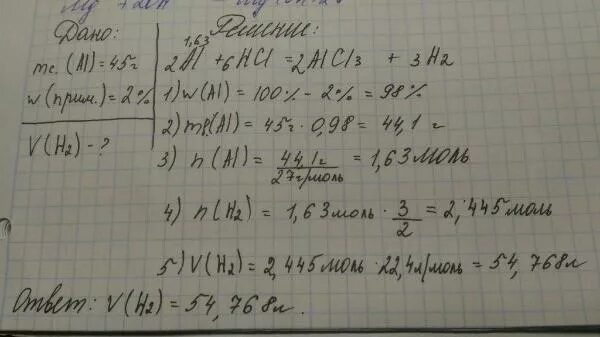 Дано:
Решение:
mс.(Al)=45г
w(прим.)=2%
V(H2)-?
1,63
2Al + 6HCl = 2AlCl3 + 3H2
1) w(Al) = 100% - 2% = 98%
2) mр.(Al) = 45г · 0,98 = 44,1 г
3) n(Al) = 44,1г / 27г/моль = 1,63 моль
4) n(H2) = 1,63 моль · 3/2 = 2,445 моль
5) V(H2) = 2,445 моль · 22,4л/моль = 54,768л
Ответ: V(H2) = 54,768л.